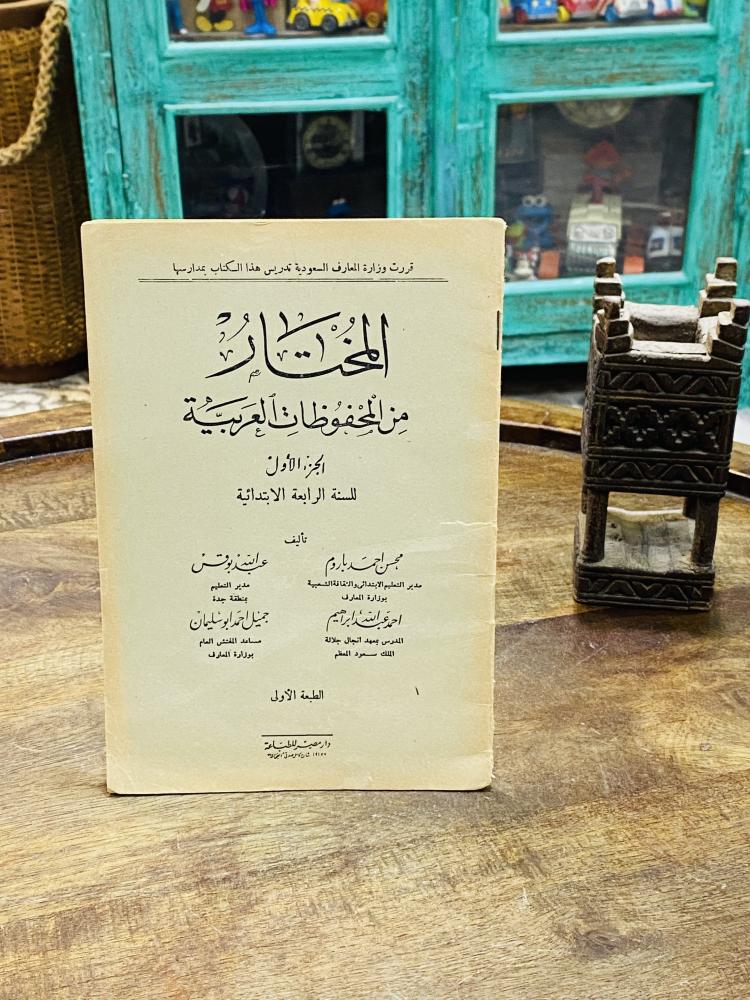 قررت وزارة المعارف السعودية تدريس هذا الكتاب بمدارسها
المختار
من المحفوظات العربية
الجزء الأول
للسنة الرابعة الابتدائية
تأليف
محسن احمد باروم
عبد الله بوقس
مدير التعليم الابتدائى والثقافة الشعبية
مدير التعليم
بوزارة المعارف
بمنطقة جدة
احمد عبد الله ابراهيم
جميل احمد ابو سليمان
المدرس بمعهد أنجال جلالة
مساعد المفتش العام
الملك سعود المعظم
بوزارة المعارف
الطبعة الأولى
دار مصر للطباعة